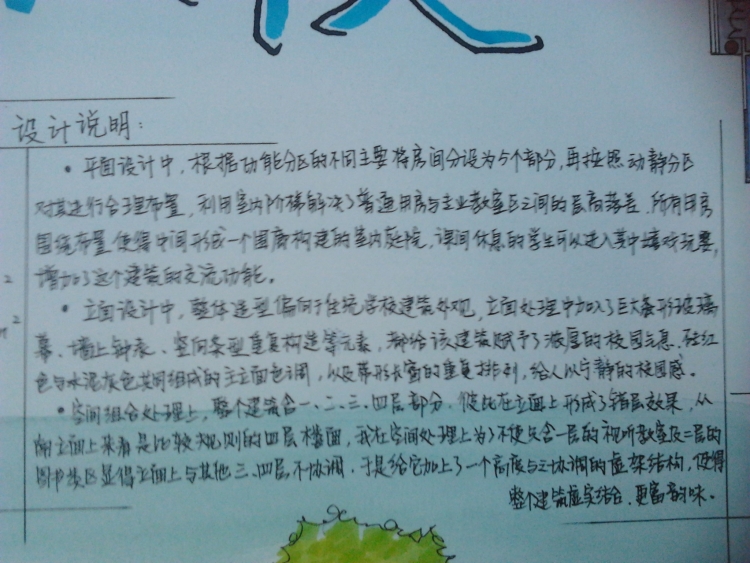 设计说明:
• 平面设计中,根据功能分区的不同主要将房间分设为5个部分,再按照动静分区
对其进行合理布置,利用室内阶梯解决了普通用房与专业教室区之间的层高落差.所有用房
围绕布置,使得中间形成一个围廊构建的室内庭院,课间休息的学生可以进入其中嬉戏玩耍,
增加了这个建筑的交流功能。
• 立面设计中,整体造型偏向于传统学校建筑外观,立面处理中加入了巨大条形玻璃
幕、墙上钟表、竖向条型重复构造等元素,都给该建筑赋予了浓厚的校园气息.砖红
色与水泥灰色共同组成的主立面色调,以及带形长窗的重复排列,给人以宁静的校园感。
• 空间组合处理上,整个建筑含一、二、三、四层部分,彼此在立面上形成了错层效果,从
南立面上来看是比较规则的四层楼面,我在空间处理上为了不使只含一层的视听教室及二层的
图书类区显得立面上与其他三、四层不协调,于是给它加上了一个高度与之协调的虚架结构,使得
整个建筑虚实结合,更富韵味。